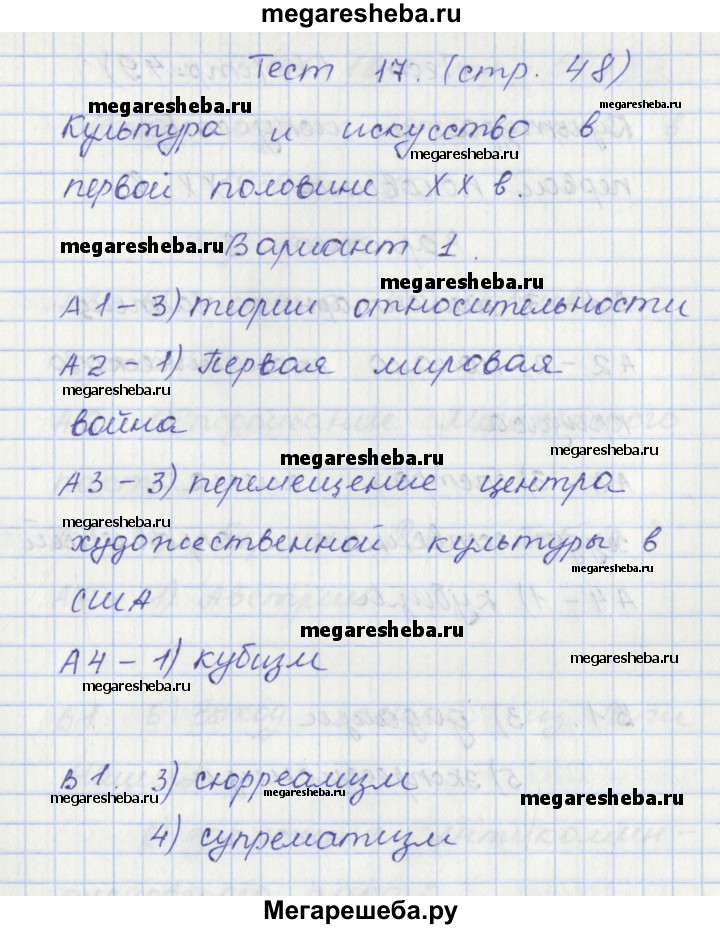 megaresheba.ru
Тест 17. (стр. 48)
megaresheba.ru
megaresheba.ru
Культура и искусство в
megaresheba.ru
первой половине XX в.
megaresheba.ru
Вариант 1.
megaresheba.ru
А1 – 3) теории относительности
А2 – 1) Первая мировая
megaresheba.ru
война
megaresheba.ru
megaresheba.ru
А3 – 3) перемещение центра
megaresheba.ru
художественной культуры в
megaresheba.ru
США
megaresheba.ru
А4 – 1) кубизм
megaresheba.ru
megaresheba.ru
В1. 3) сюрреализм
megaresheba.ru
megaresheba.ru
megaresheba.ru
4) супрематизм
Мегарешеба.ру